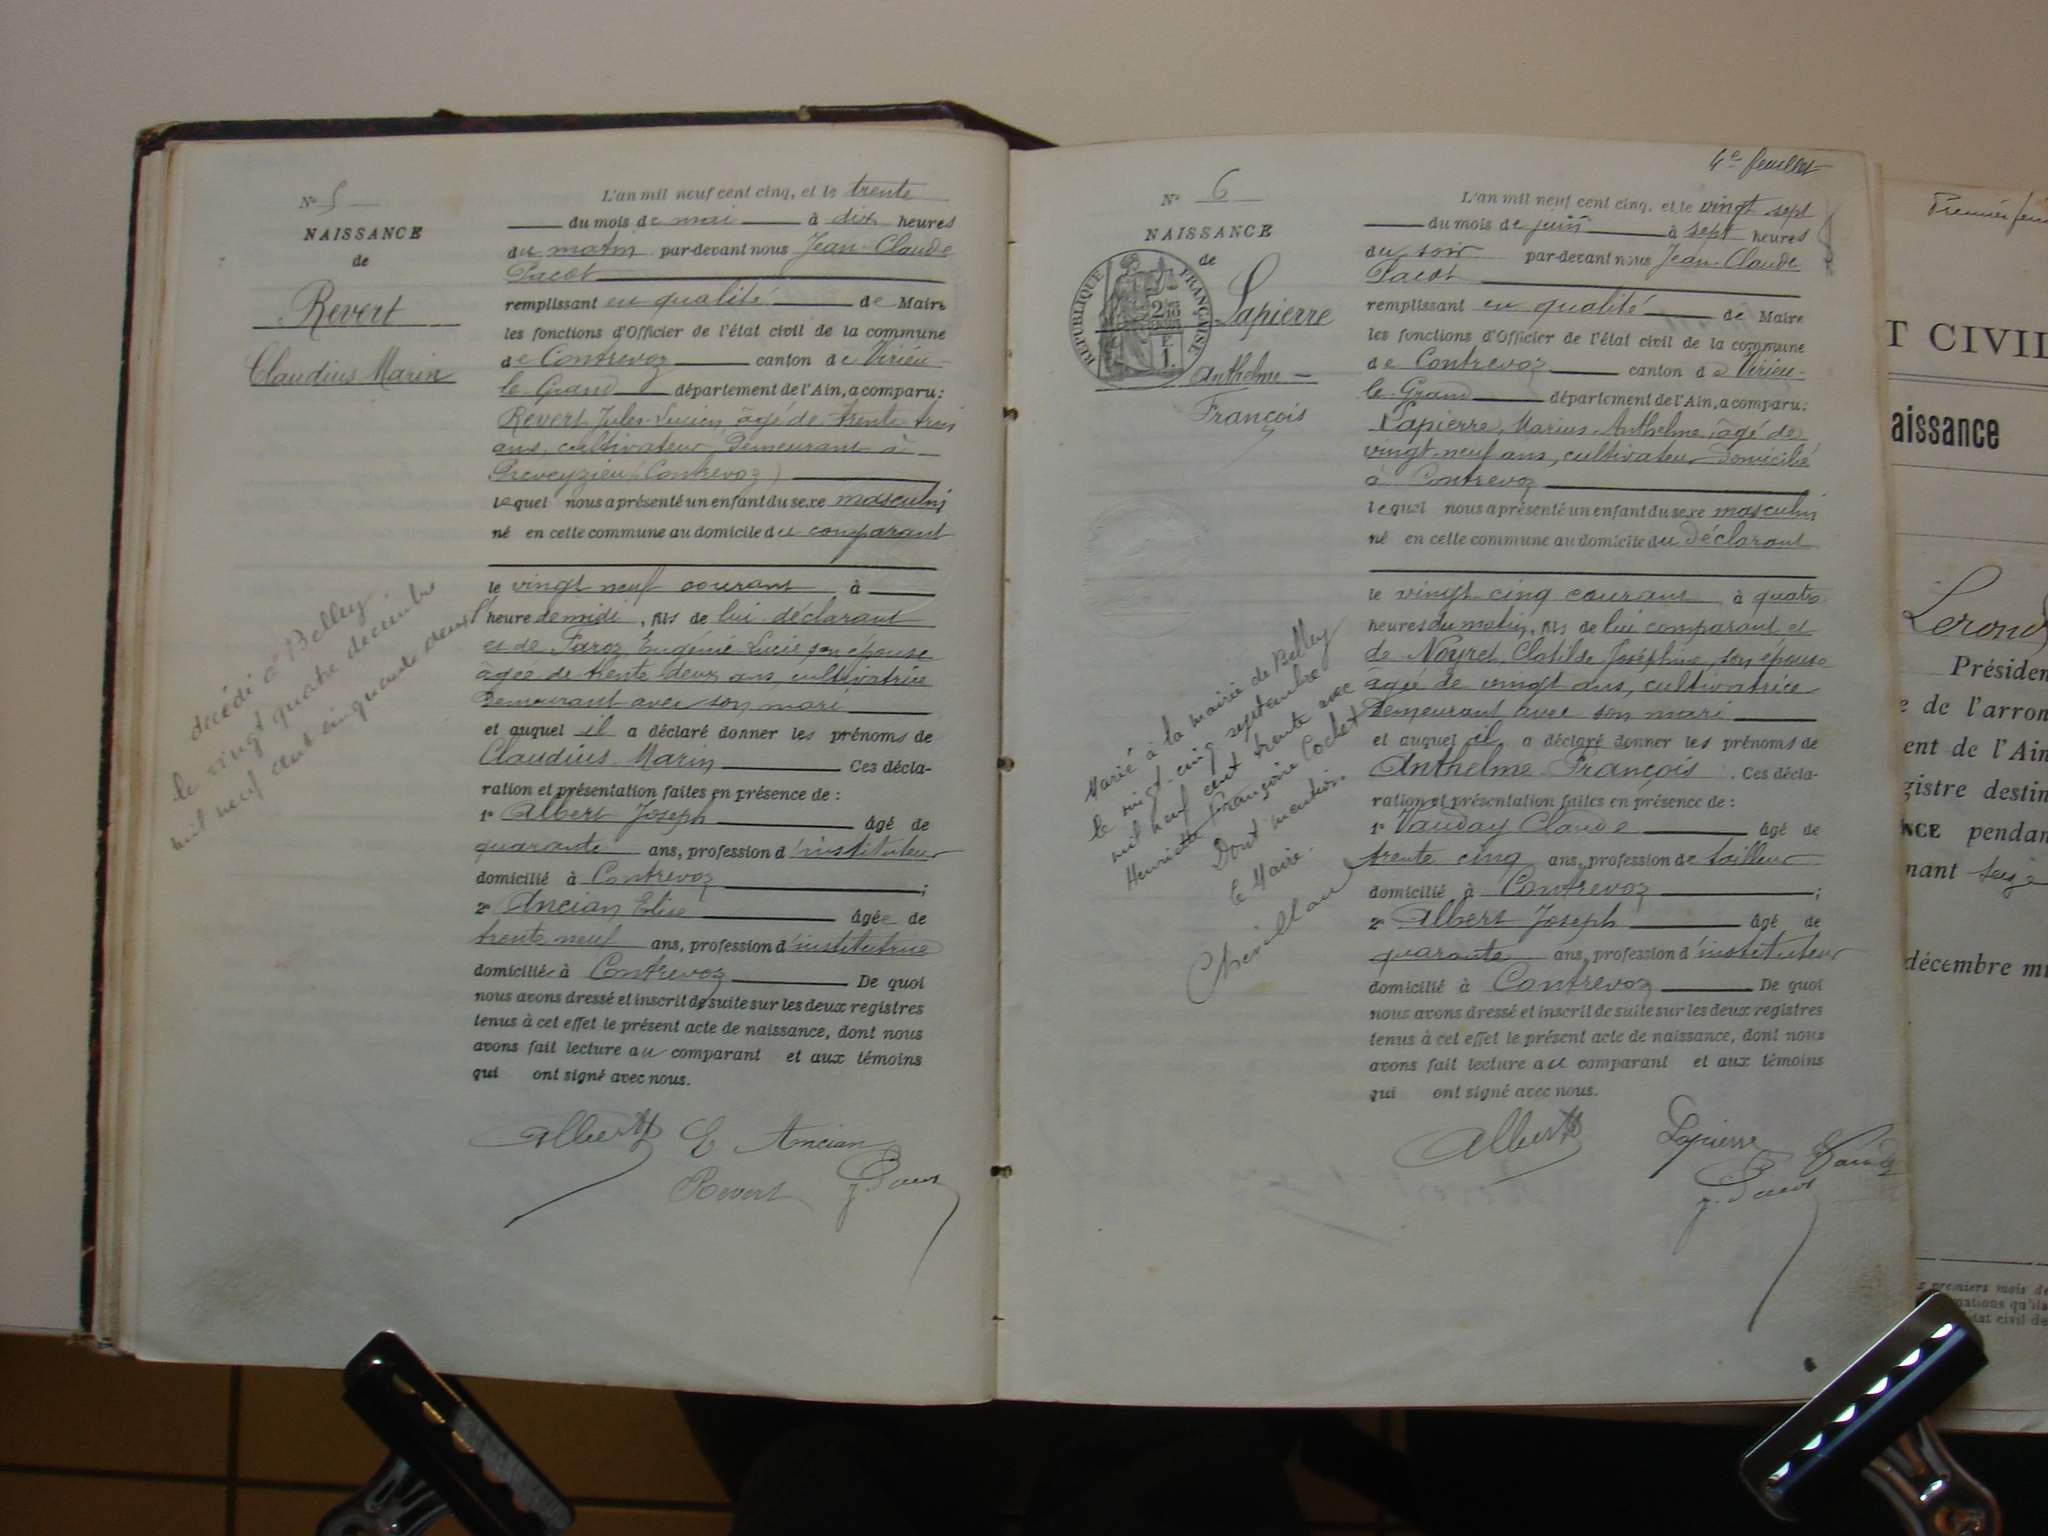 N° 5
NAISSANCE
de
Revert
Claudius Marin
décédé à Belley
le vingt quatre decembre
mil neuf cent cinquante deux
L'an mil neuf cent cinq, et le trente
du mois de mai à dix heures
du matin par-devant nous Jean-Claude
Pacot
remplissant en qualité de Maire
les fonctions d'Officier de l'état civil de la commune
de Contrevoz canton de Virieu-
le-Grand département de l'Ain, a comparu:
Revert Jules-Lucien, âgé de trente trois
ans, cultivateur, demeurant à
Preveyzieu (Contrevoz)
lequel nous a présenté un enfant du sexe masculin
né en cette commune au domicile du comparant
le vingt neuf courant à
l'heure de midi, fils de lui déclarant
et de Faroz Eugénie Lucie son épouse
âgée de trente deux ans, cultivatrice
demeurant avec son mari
et auquel il a déclaré donner les prénoms de
Claudius Marin Ces décla-
ration et présentation faites en présence de :
1° Albert Joseph âgé de
quarante ans, profession d'instituteur
domicilié à Contrevoz ;
2° Ancian Elise âgée de
trente neuf ans, profession d'institutrice
domiciliée à Contrevoz De quoi
nous avons dressé et inscrit de suite sur les deux registres
tenus à cet effet le présent acte de naissance, dont nous
avons fait lecture au comparant et aux témoins
qui ont signé avec nous.
Albert E Ancian
Revert J. Pacot
4e feuillet
N° 6
NAISSANCE
de
RÉPUBLIQUE FRANÇAISE
Lapierre
Anthelme
François
Marié à la mairie de Belley
le vingt-cinq septembre
mil neuf cent trente avec
Henriette Françoise Cochet
Dont mention.
Le Maire.
L'an mil neuf cent cinq, et le vingt sept
du mois de juin à sept heures
du soir par-devant nous Jean-Claude
Pacot
remplissant en qualité de Maire
les fonctions d'Officier de l'état civil de la commune
de Contrevoz canton de Virieu-
le-Grand département de l'Ain, a comparu:
Lapierre, Marius-Anthelme, âgé de
vingt-neuf ans, cultivateur domicilié
à Contrevoz
lequel nous a présenté un enfant du sexe masculin
né en cette commune au domicile du déclarant
le vingt cinq courant à quatre
heures du matin, fils de lui comparant et
de Noyret, Clotilde Joséphine, son épouse
âgée de vingt ans, cultivatrice
demeurant avec son mari
et auquel il a déclaré donner les prénoms de
Anthelme François . Ces décla-
ration et présentation faites en présence de :
1° Vauday Claude âgé de
trente cinq ans, profession de tailleur
domicilié à Contrevoz ;
2° Albert Joseph âgé de
quarante ans, profession d'instituteur
domicilié à Contrevoz De quoi
nous avons dressé et inscrit de suite sur les deux registres
tenus à cet effet le présent acte de naissance, dont nous
avons fait lecture au comparant et aux témoins
qui ont signé avec nous.
Albert Lapierre
J. Pacot
T CIVIL
aissance
Présiden
e de l'arron
ent de l'Ain
gistre destin
NCE pendan
nant seize
décembre mi
premiers mois de